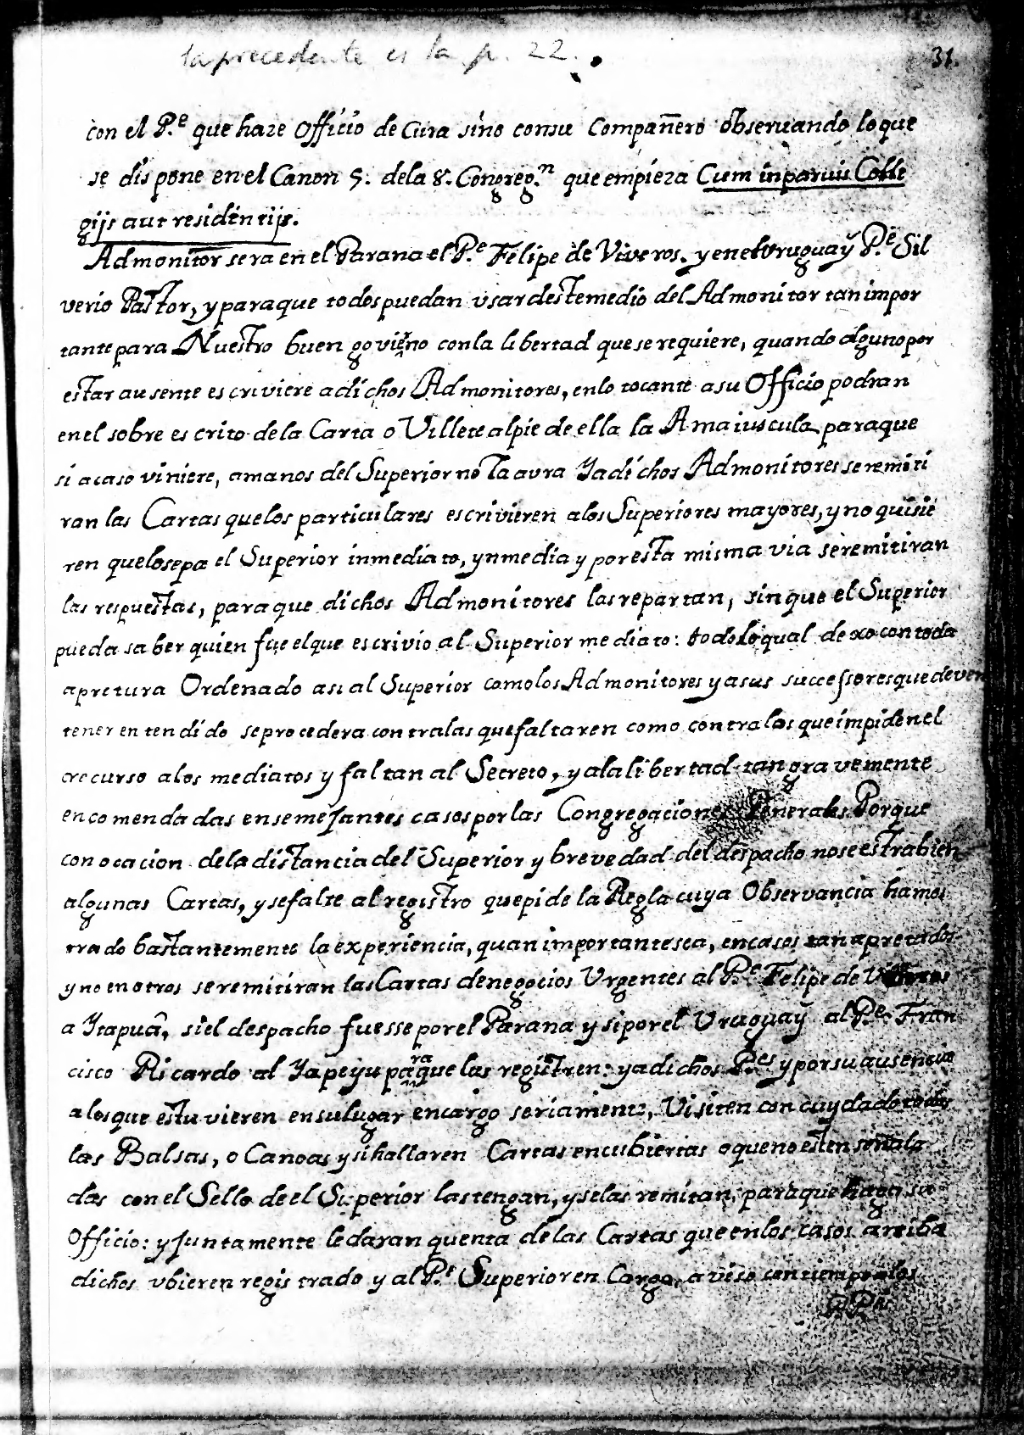 la precedente es la p. 22.
31.
con el P.e que haze officio de Cura sino consu Compañero observando lo que
se dispone en el Canon 5. dela 8.a Congreg.n que empieza Cum in parvis Colle
gijs aut residentijs.
Admonitor sera en el Parana el P.e Felipe de Viveros. y en el Uruguaÿ P.e Sil
verio Pastor, y paraque todos puedan usar deste medio del Admonitor tan impor
tante para Nuestro buen govierno conla libertad que se requiere, quando alguno por
estar ausente escriviere a dichos Admonitores, enlo tocante a su Officio podran
en el sobre escrito de la Carta o Villete alpie de ella la A maiuscula paraque
si acaso viniere, a manos del Superior no la avra Y a dichos Admonitores se remiti
ran las Cartas que los particulares escrivieren a los Superiores mayores, y no quisie
ren quelosepa el Superior inmediato, ynmedia y por esta misma via se remitiran
las respuestas, para que dichos Admonitores las repartan, sin que el Superior
pueda saber quien fue elque escrivio al Superior mediato: todo lo qual dexo con toda
apretura Ordenado asi al Superior como los Admonitores y a sus successores que deven
tener entendido se procedera contra las que faltaren como contra los que impiden el
recurso a los mediatos y faltan al Secreto, y ala libertad tan gravemente
encomendadas en semejantes casos por las Congregaciones Generales. Porque
con ocacion dela distancia del Superior y brevedad del despacho no se estrabien
algunas Cartas, y se falte al registro que pide la Regla cuya Observancia hamos
trado bastantemente la experiencia, quan importante sea, en casos tan apretados
y no en otros se remitiran las Cartas de negocios Urgentes al P.e Felipe de Viveros
a Ytapuâ, si el despacho fuesse por el Parana y si por el Uruguaÿ al P.e Fran
cisco Ricardo al Yapeyu para que las registren: y a dichos P.es y por su ausencia
a los que estuvieren en su lugar encargo seriamente, Visiten con cuydado todas
las Balsas, o Canoas y si hallaren Cartas encubiertas o que no esten señala
das con el Sello de el Superior las tengan, y se las remitan, para que haga su
Officio: y juntamente le daran quenta de las Cartas que en los casos arriba
dichos ubieren registrado y al P.e Superior en Cargo, aviso con tiempo a los
P.Pes